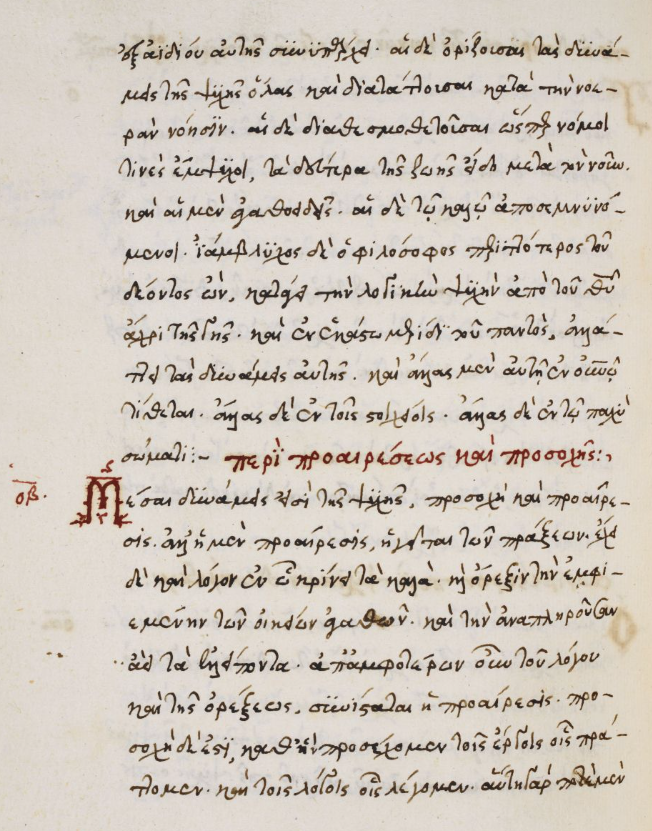 ἐξ ἀϊδίου αὐτῆς συνυπῆρχε. αἱ δὲ ὁρίζουσαι τὰς δυνά-
μεις τῆς ψυχῆς ὅλας καὶ διατάττουσαι κατὰ τὴν νοε-
ρὰν νόησιν. αἱ δὲ διαθεσμοθετοῦσαι ὥσπερ νόμοι
τινὲς ἔμψυχοι, τὰ δεύτερα τῆς ζωῆς εἴδη μετὰ τὸν νοῦν.
καὶ αἱ μὲν ἀγαθοειδεῖς. αἱ δὲ τῷ καλῷ ἀποσεμνυνό-
μεναι. ἰάμβλιχος δὲ ὁ φιλόσοφος περιττότερος τοῦ
δέοντος ὢν, κατάγει τὴν λογικὴν ψυχὴν ἀπὸ τοῦ θεοῦ
ἄχρι τῆς γῆς. καὶ ἐν ἑκάστῳ μερίδι τοῦ παντὸς, ἀνά-
πτει τὰς δυνάμεις αὐτῆς. καὶ ἄλλας μὲν αὐτῇ ἐν οὐρανῷ
τίθεται. ἄλλας δὲ ἐν τοῖς στοιχείοις. ἄλλας δὲ ἐν τῷ παχεῖ
σώματι:- περὶ προαιρέσεως καὶ προσοχῆς:
οβ. Μέσαι δυνάμεις εἰσὶ τῆς ψυχῆς, προσοχὴ καὶ προαίρε-
σις. ἀλλ' ἡ μὲν προαίρεσις, ἡγεῖται τῶν πράξεων. ἔχει
δὲ καὶ λόγον ἐν ᾧ κρίνει τὰ καλά. καὶ ὄρεξιν τὴν ἐμφι-
εμένην τῶν οἰκείων ἀγαθῶν. καὶ τὴν ἀναπληροῦσαν
ἀεὶ τὰ ἐλλείποντα. ἀπ' ἀμφοτέρων οὖν τοῦ λόγου
καὶ τῆς ὀρέξεως, συνίσταται ἡ προαίρεσις. προ-
σοχὴ δέ ἐστι, καθ' ἣν προσέχομεν τοῖς ἔργοις οἷς πρά-
ττομεν. καὶ τοῖς λόγοις οἷς λέγομεν. αὕτη γὰρ